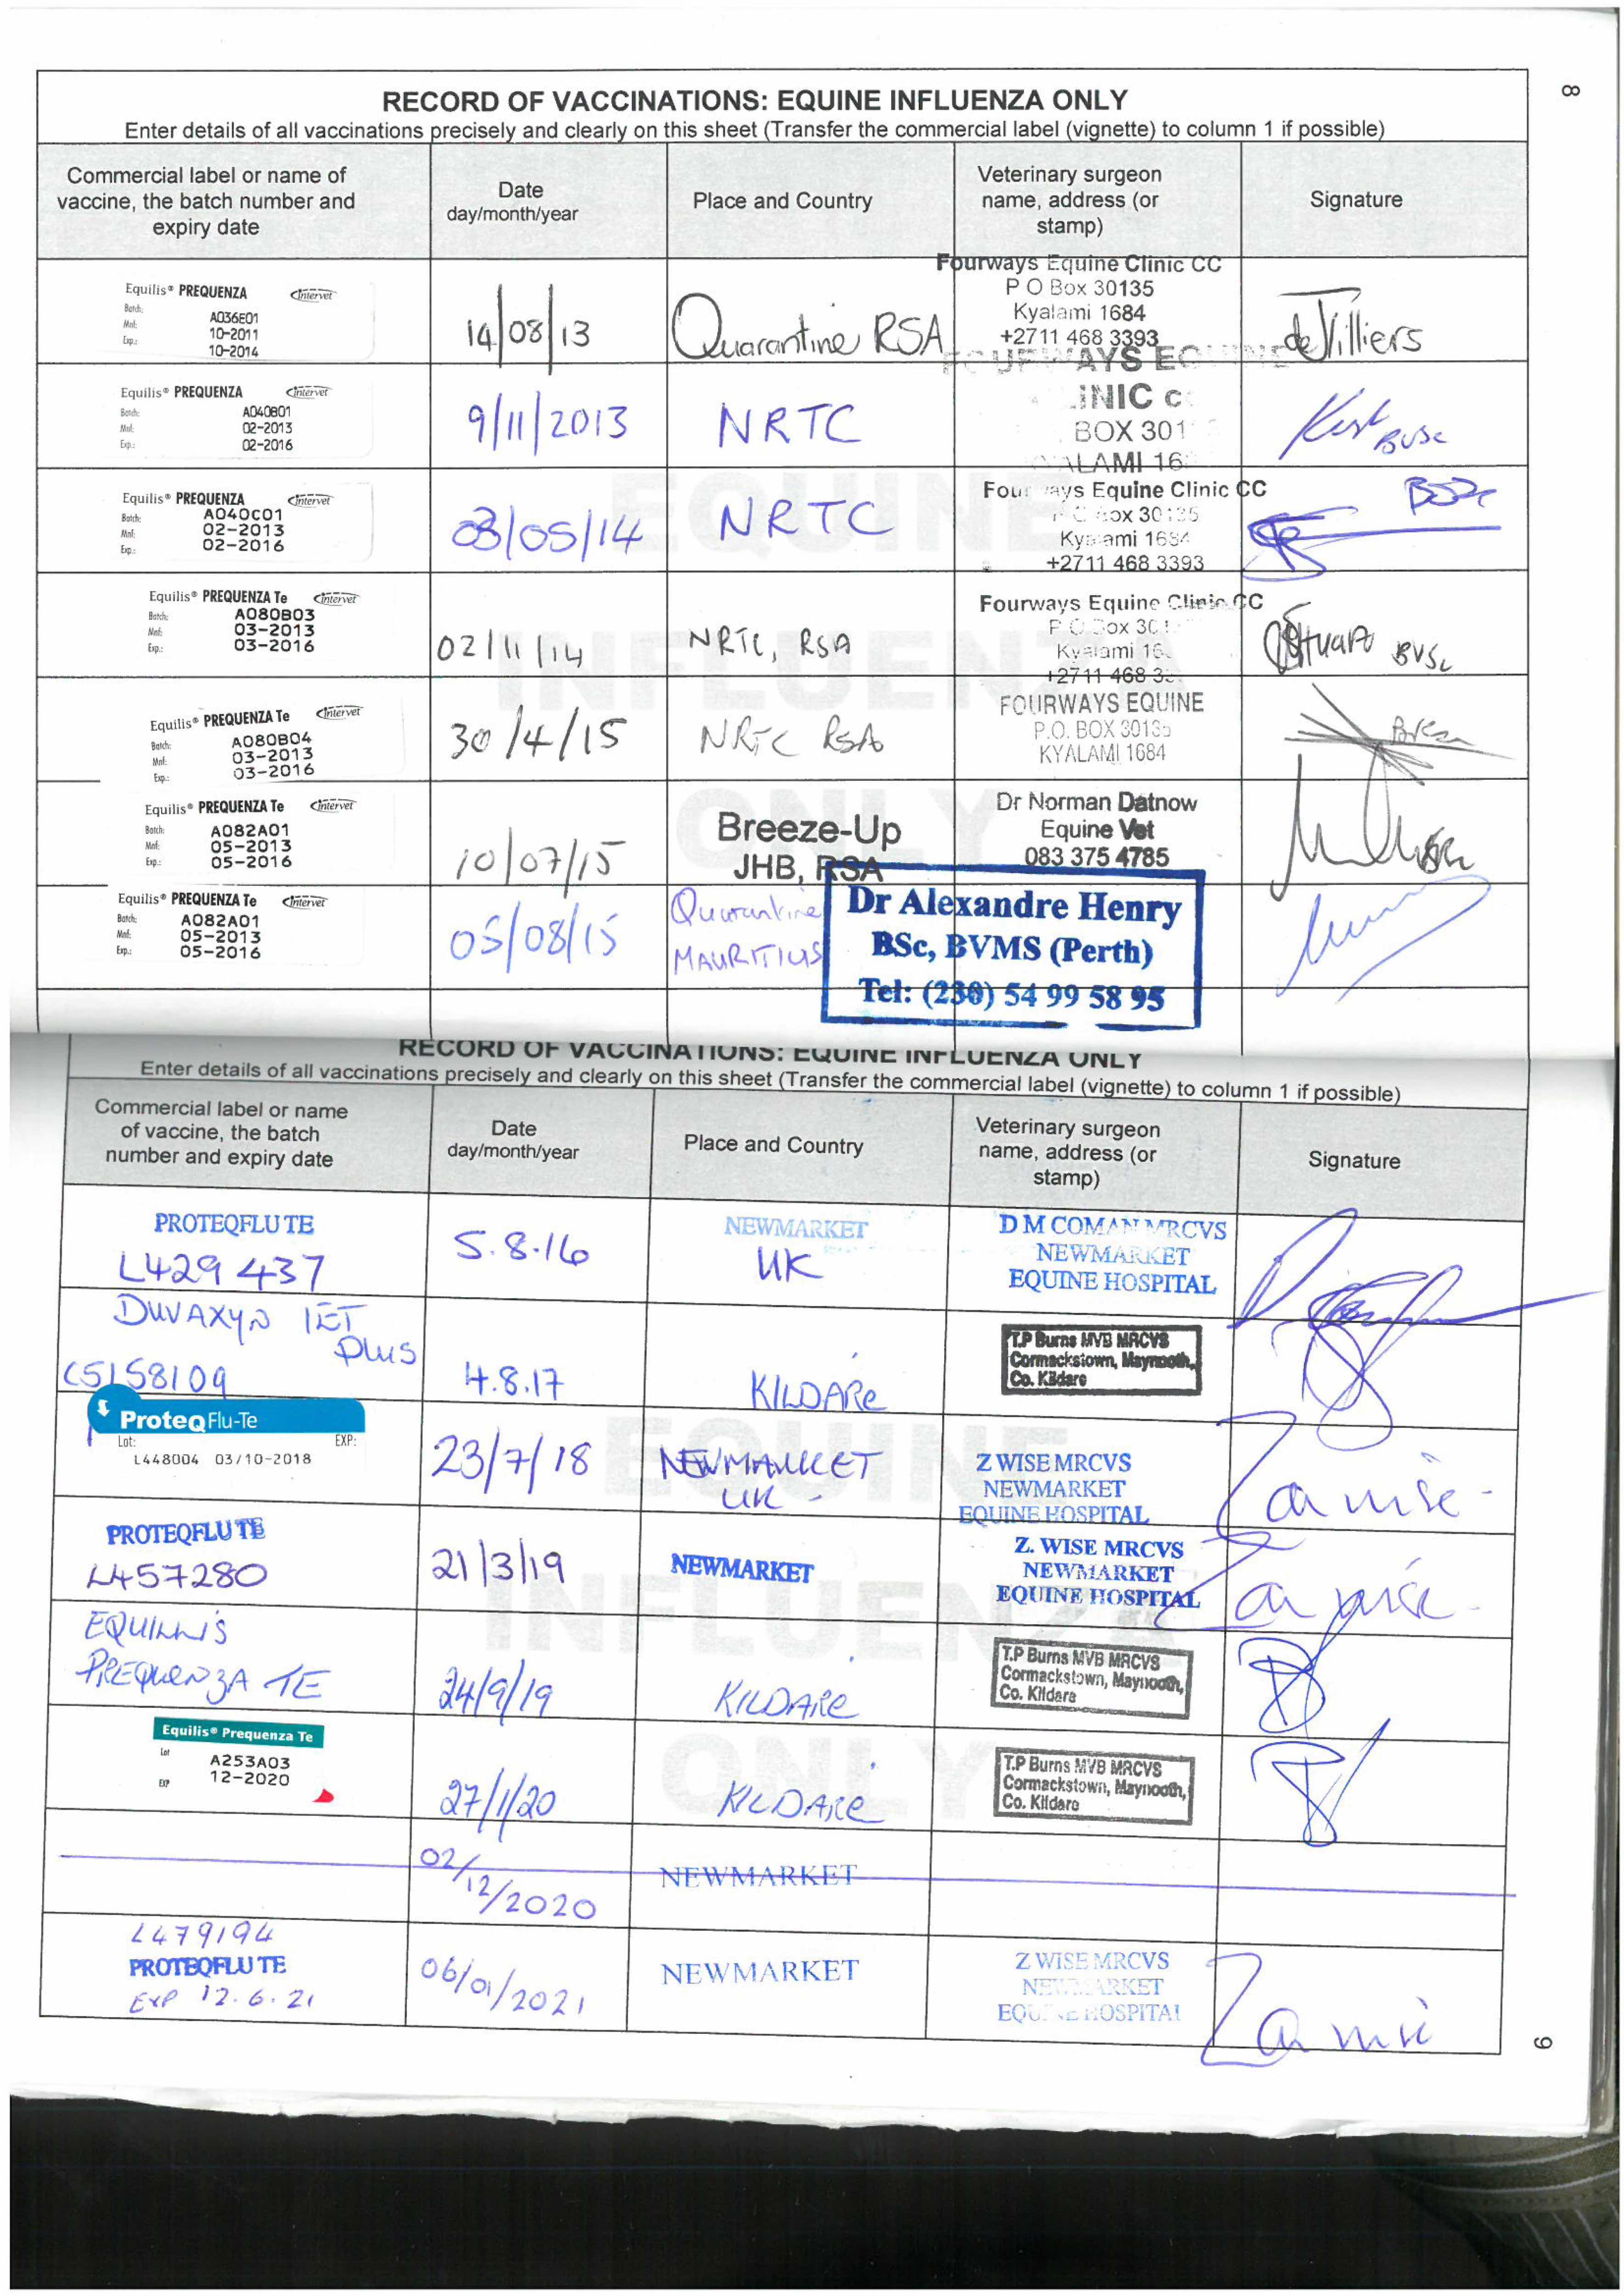 8
RECORD OF VACCINATIONS: EQUINE INFLUENZA ONLY
Enter details of all vaccinations precisely and clearly on this sheet (Transfer the commercial label (vignette) to column 1 if possible)
Commercial label or name of vaccine, the batch number and expiry date
Date day/month/year
Place and Country
Veterinary surgeon name, address (or stamp)
Signature
Equilis® PREQUENZA Intervet
Batch: A036E01
Mnf: 10-2011
Exp.: 10-2014
14/08/13
Quarantine RSA
Fourways Equine Clinic CC
P O Box 30135
Kyalami 1684
+2711 468 3393
de Villiers
Equilis® PREQUENZA Intervet
Batch: A040B01
Mnf: 02-2013
Exp.: 02-2016
9/11/2013
NRTC
FOURWAYS EQUINE
INIC C
BOX 301
ALAMI 16
BVSc
Equilis® PREQUENZA Intervet
Batch: A040C01
Mnf: 02-2013
Exp.: 02-2016
03/05/14
NRTC
Fourways Equine Clinic CC
P O Box 30135
Kyalami 1684
+2711 468 3393
Equilis® PREQUENZA Te Intervet
Batch: A080B03
Mnf: 03-2013
Exp.: 03-2016
02/11/14
NRTC, RSA
Fourways Equine Clinic CC
P O Box 301
Kyalami 16
+2711 468 33
Stuart BVSc
Equilis® PREQUENZA Te Intervet
Batch: A080B04
Mnf: 03-2013
Exp.: 03-2016
30/4/15
NRTC RSA
FOURWAYS EQUINE
P.O. BOX 30135
KYALAMI 1684
Equilis® PREQUENZA Te Intervet
Batch: A082A01
Mnf: 05-2013
Exp.: 05-2016
10/07/15
Breeze-Up
JHB, RSA
Dr Norman Datnow
Equine Vet
083 375 4785
Equilis® PREQUENZA Te Intervet
Batch: A082A01
Mnf: 05-2013
Exp.: 05-2016
05/08/15
Quarantine
MAURITIUS
Dr Alexandre Henry
BSc, BVMS (Perth)
Tel: (230) 54 99 58 95
EQUINE
INFLUENZA
ONLY
RECORD OF VACCINATIONS: EQUINE INFLUENZA ONLY
Enter details of all vaccinations precisely and clearly on this sheet (Transfer the commercial label (vignette) to column 1 if possible)
Commercial label or name of vaccine, the batch number and expiry date
Date day/month/year
Place and Country
Veterinary surgeon name, address (or stamp)
Signature
PROTEQFLU TE
L429437
5.8.16
NEWMARKET
UK
D M COMAN MRCVS
NEWMARKET
EQUINE HOSPITAL
DUVAXYN IET
Plus
C5158109
4.8.17
KILDARE
T.P Burns MVB MRCVS
Cormackstown, Maynooth,
Co. Kildare
ProteqFlu-Te
Lot: EXP:
L448004 03/10-2018
23/7/18
NEWMARKET
UK
Z WISE MRCVS
NEWMARKET
EQUINE HOSPITAL
Zawise
PROTEQFLU TE
L457280
21/3/19
NEWMARKET
Z. WISE MRCVS
NEWMARKET
EQUINE HOSPITAL
Zawise
EQUILLIS
PREQUENZA TE
24/9/19
KILDARE
T.P Burns MVB MRCVS
Cormackstown, Maynooth,
Co. Kildare
Equilis® Prequenza Te
Lot A253A03
EXP 12-2020
27/1/20
KILDARE
T.P Burns MVB MRCVS
Cormackstown, Maynooth,
Co. Kildare
02/12/2020
NEWMARKET
L479194
PROTEQFLU TE
EXP 12.6.21
06/01/2021
NEWMARKET
Z WISE MRCVS
NEWMARKET
EQUINE HOSPITAL
Zawise
EQUINE
INFLUENZA
ONLY
9